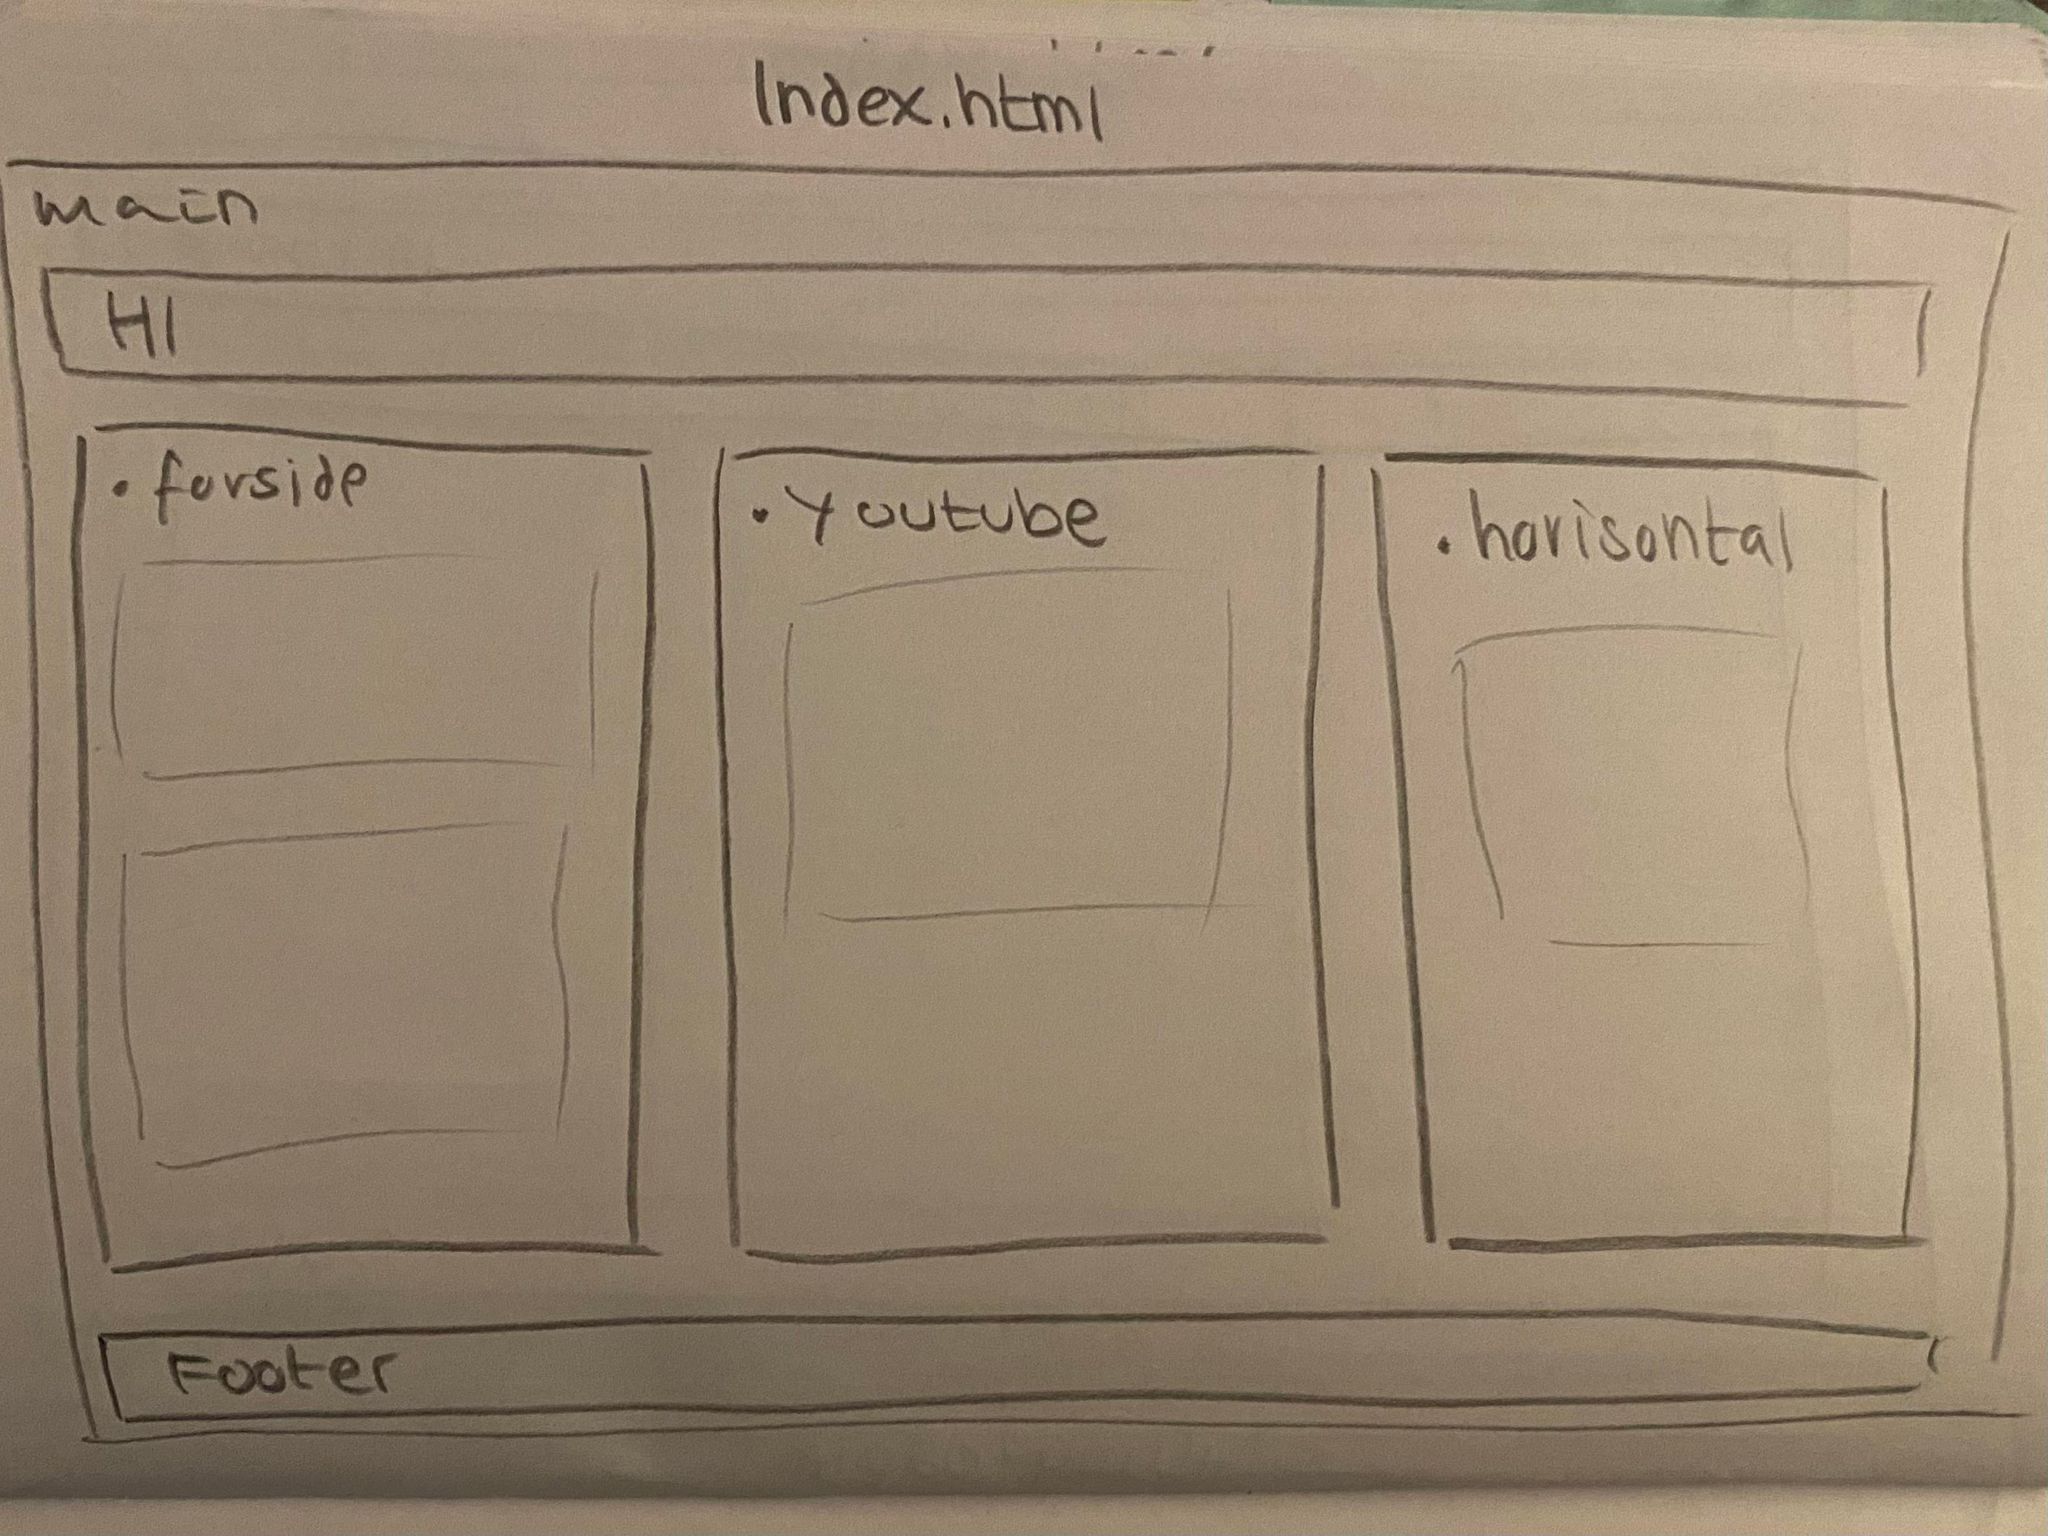 Index.html
main
H1
.forside
.Youtube
.horisontal
Footer